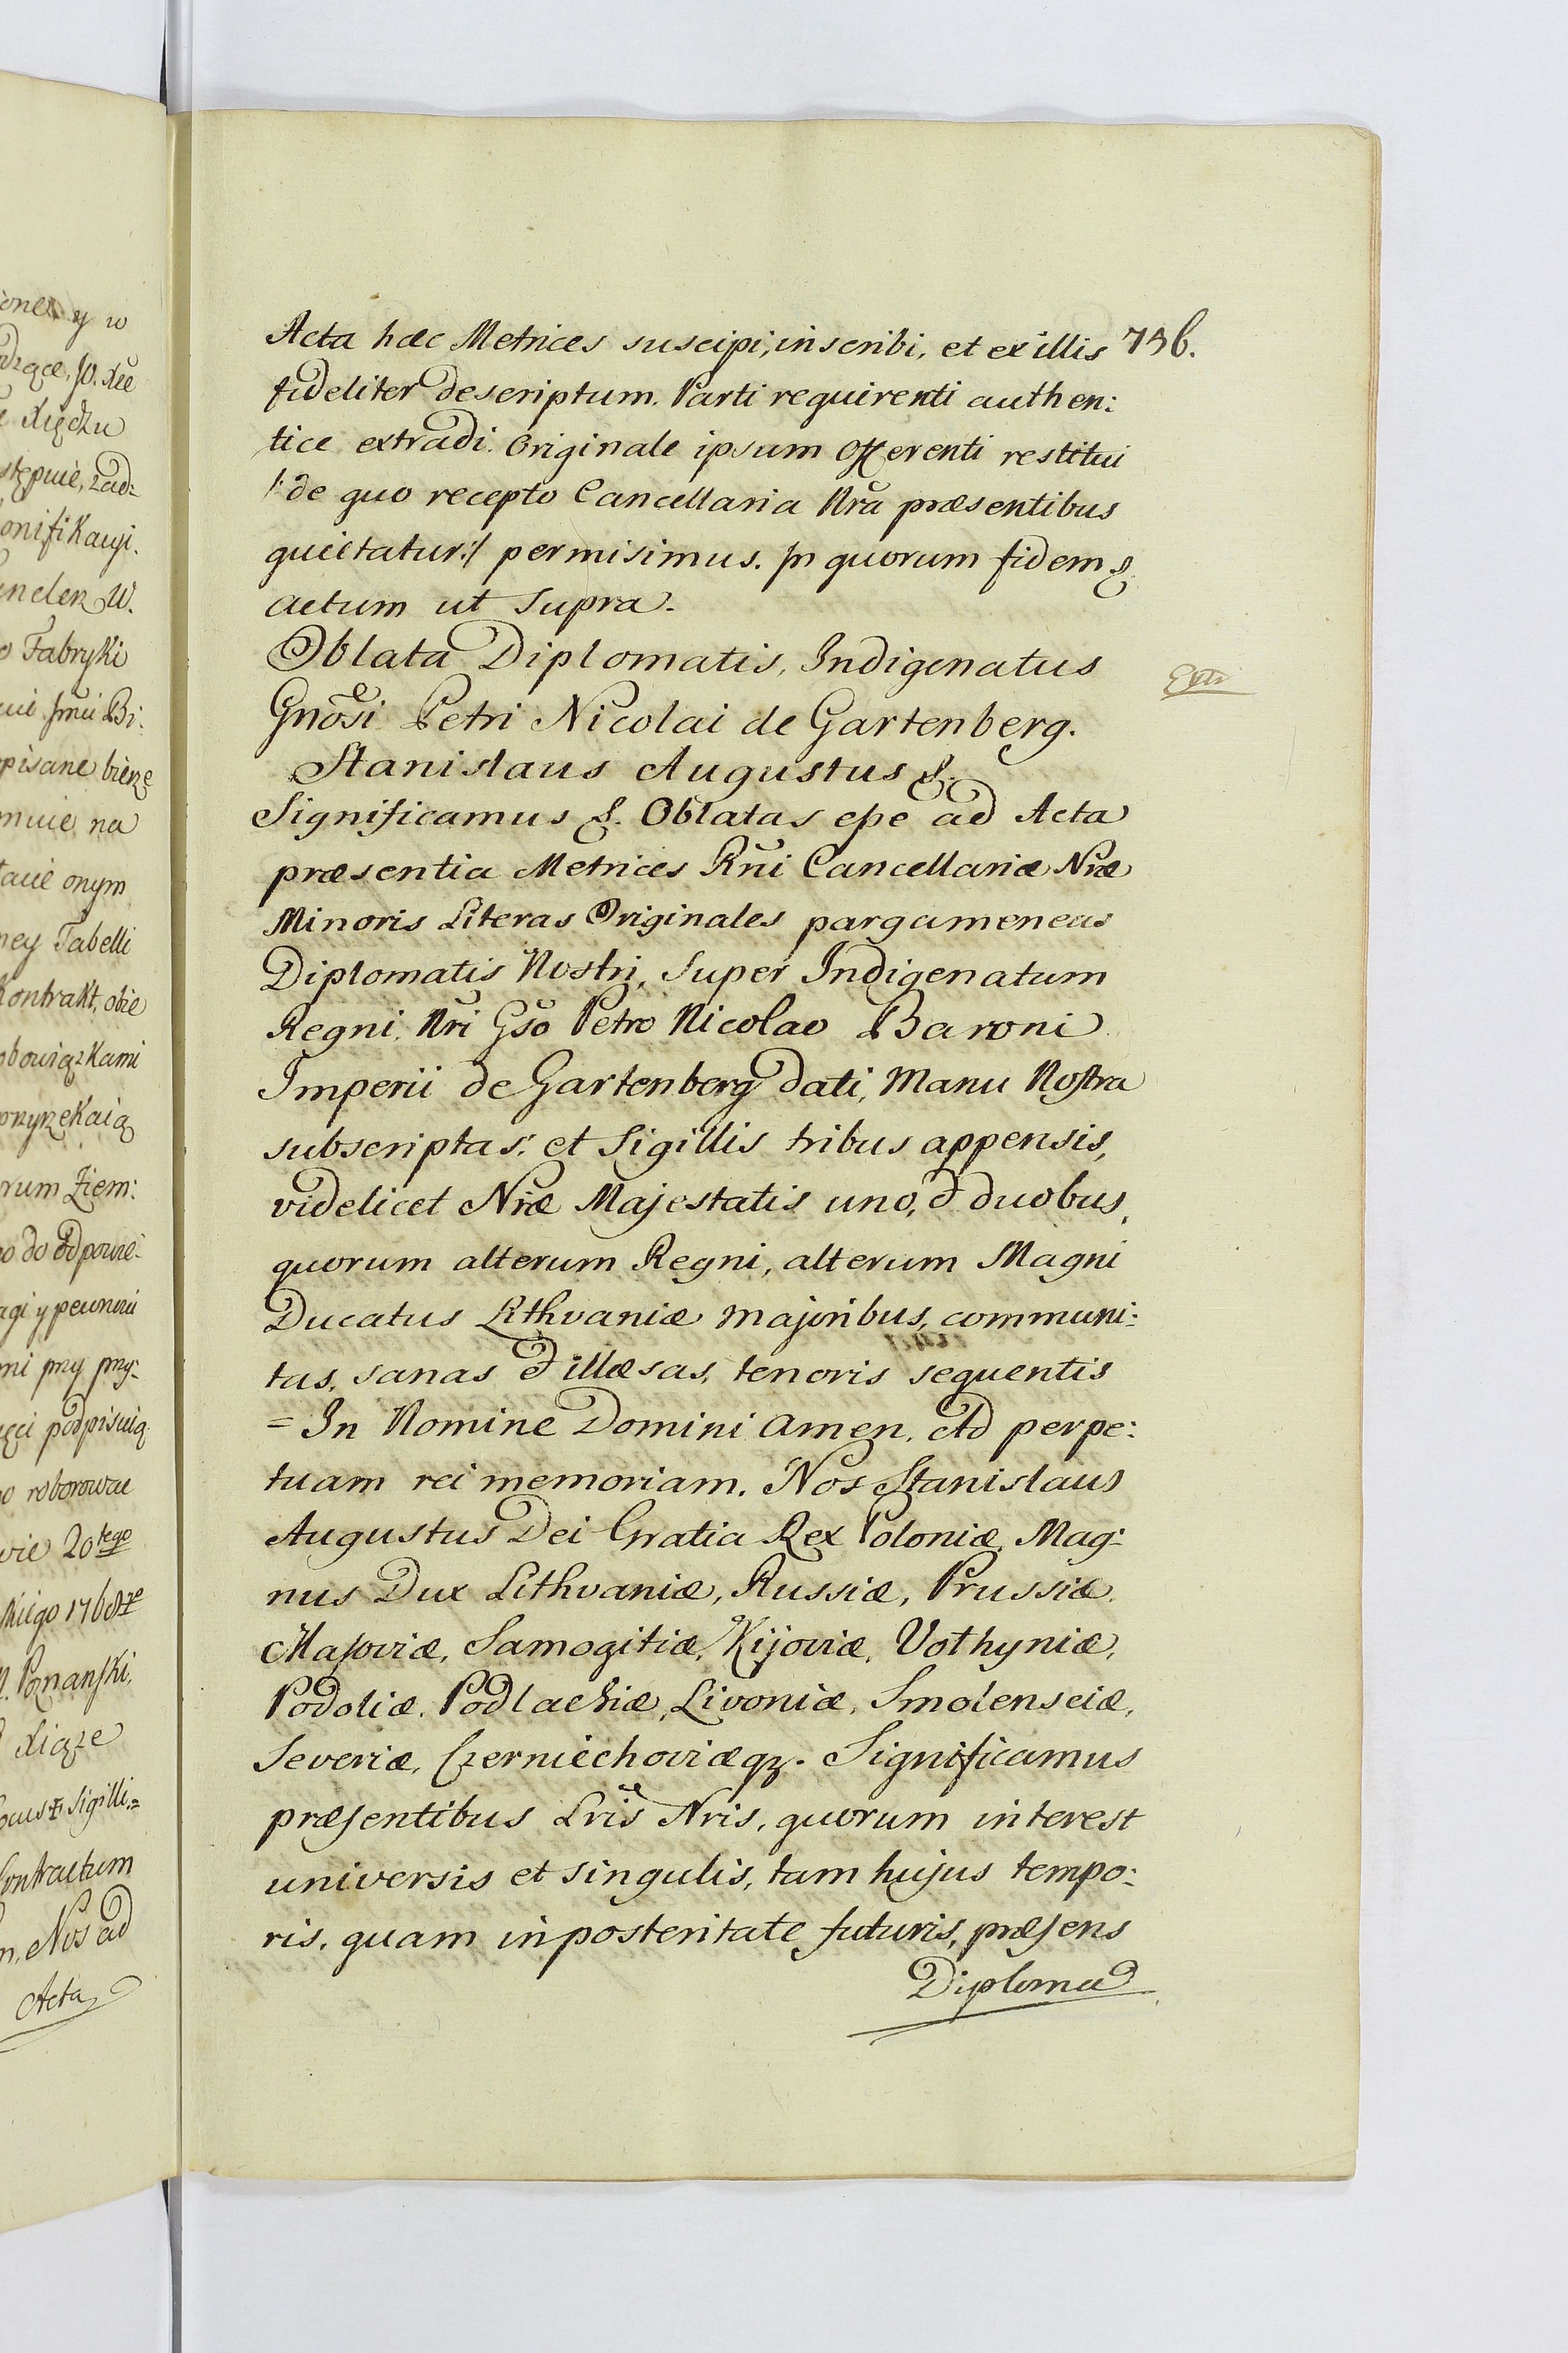 ione y w
Xiędzu
onifikacyi.
o Fabryki
pisane bierze
muie na
onym
ney Tabelli
Kontrakt, obie
obowiązkami
rum Ziem:
do odpowie-
mi przy przy-
podpisuią
o roborowac
wie 20tego
1768
Poznanski,
Xiąze
Locus Sigilli =
Contractum
Nos ad
Acta
736.
Acta hæc Metrices suscipi, inscribi, et ex illis
fideliter descriptum. Parti requirenti authen:
tice extradi. Originale ipsum Offerenti restitui
/: de quo recepto Cancellaria Nra præsentibus
quiettatur :/ permisimus. In quorum fidem &.
actum ut supra.
Oblata Diplomatis, Indigenatus
Gnosi Petri Nicolai de Gartenberg.
Extr
Stanislaus Augustus &.
Significamus &. Oblatas eße ad Acta
præsentia Metrices Rni Cancellariæ Nræ
Minoris Literas Originales pargameneas
Diplomatis Nostri, Super Indigenatum
Regni Nri Gso Petro Nicolao Baroni
Imperii de Gartenberg dati, Manu Nostra
subscriptas, et Sigillis tribus appensis,
videlicet Nræ Majestatis uno, & duobus,
quorum alterum Regni, alterum Magni
Ducatus Lithvaniæ majoribus, communi:
tas, sanas & illæsas, tenoris sequentis
= In Nomine Domini Amen. Ad perpe:
tuam rei memoriam. Nos Stanislaus
Augustus Dei Gratia Rex Poloniæ, Mag:
nus Dux Lithvaniæ, Russiæ, Prussiæ,
Masoviæ, Samogitiæ, Kijoviæ, Volhyniæ,
Podoliæ, Podlachiæ, Livoniæ, Smolensciæ,
Severiæ, Czerniechoviæq₃. Significamus
præsentibus Lris Nris, quorum interest
universis et singulis, tam hujus tempo:
ris, quam in posteritate futuris, præsens
Diploma